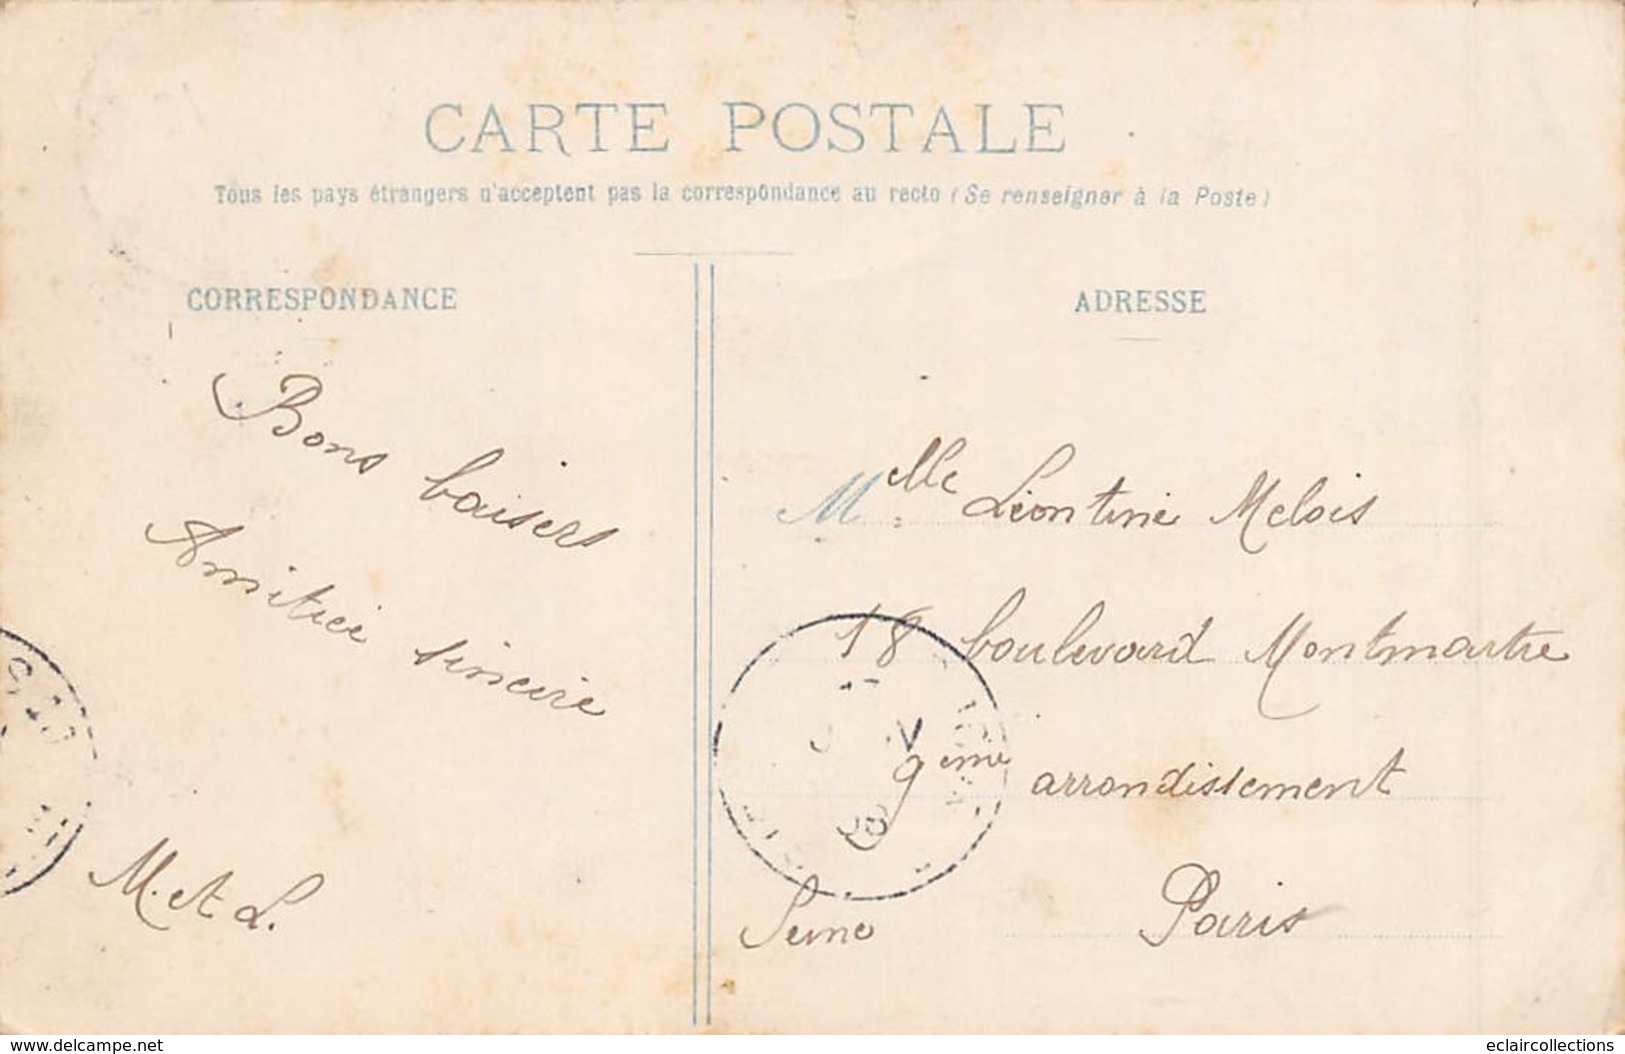 CARTE POSTALE
Tous les pays étrangers n'acceptent pas la correspondance au recto (Se renseigner à la Poste)
CORRESPONDANCE
Bons baisers
Amitiéé sincère
M. et L.
ADRESSE
Melle Léontine Melois
18 boulevard Montmartre
9ème arrondissement
Seine Paris
www.delcampe.net
eclaircollections